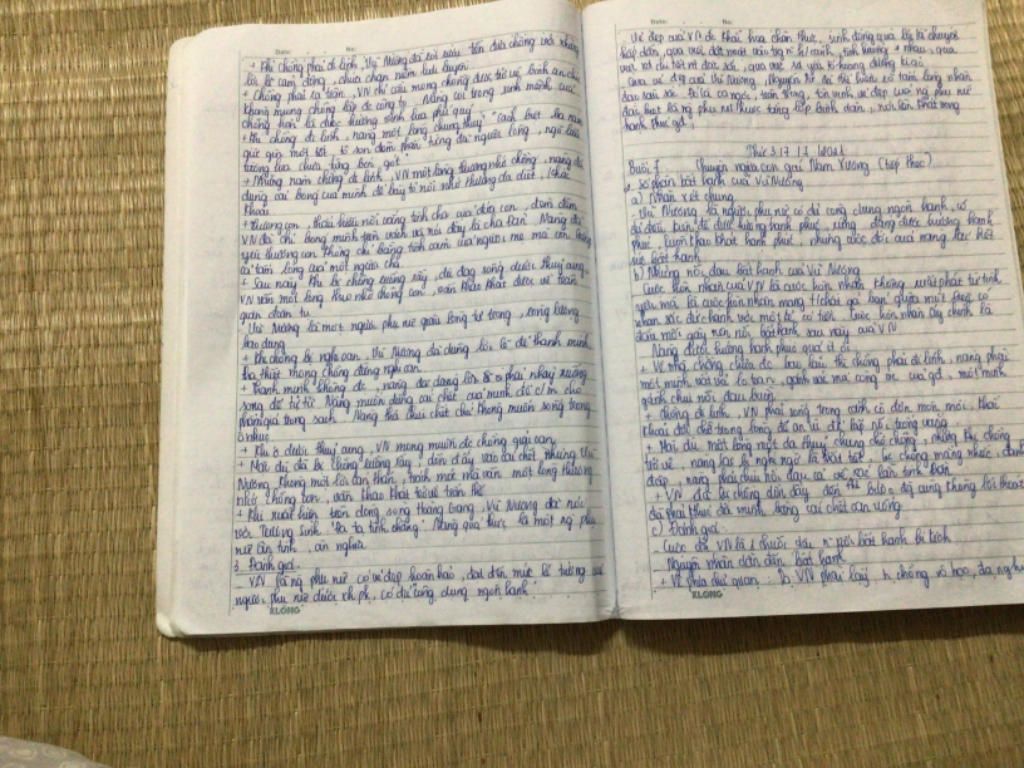 Date: No:
+ Khi chồng phải đi lính, Vũ Nương đã rót rượu tiễn đưa chồng với những
lời lẽ cảm động, chứa chan niềm lưu luyến
+ Chồng phải ra trận, VN chỉ cầu mong chồng được trở về bình an chứ
không mong chồng lập đc công to. Nàng coi trọng sinh mệnh của
chồng hơn là được hưởng vinh hoa phú quý
+ Khi chồng đi lính, nàng một lòng chung thủy "cách biệt ba năm
giữ gìn một tiết, tô son điểm phấn từng đã nguôi lòng, ngõ liễu
tường hoa chưa từng bén gót"
+ Những năm chồng đi lính, VN một lòng thương nhớ chồng, nàng đã
dùng cái bóng của mình để bày tỏ nỗi nhớ thương da diết, khắc
khoải
+ Thương con, thấu hiểu nỗi vắng tình cha của đứa con, đêm đêm
VN đã chỉ bóng mình trên vách và nói đấy là cha Đản. Nàng đã
yêu thương con không chỉ bằng tình cảm của người mẹ mà còn bằng
cả tấm lòng của một người cha
+ Sau này khi bị chồng ruồng rẫy, dù đang sống dưới thủy cung,
VN vẫn một lòng thương nhớ chồng con, vẫn khao khát được về trần
gian đoàn tụ
- Vũ Nương là một người phụ nữ giàu lòng tự trọng, lòng
bao dung
+ Khi chồng bị nghi oan, Vũ Nương đã dùng lời lẽ để thanh minh,
tha thiết mong chồng đừng nghi oan
+ Thanh minh không đc, nàng đã phải nhảy xuống
sông để tự tử. Nàng muốn dùng cái chết của mình để c/m cho
phẩm giá trong sạch. Nàng thà chịu chết chứ không muốn sống trong
ô nhục
+ Khi ở dưới thủy cung, VN mong muốn đc chồng giải oan
+ Mặc dù đã bị chồng ruồng rẫy, dồn đẩy vào cái chết nhưng Vũ
Nương không một lời oán thán, trách móc mà vẫn một lòng thương
nhớ chồng con, vẫn khao khát trở về trần thế
+ Khi xuất hiện trên dòng sông Hoàng Giang, Vũ Nương đã nói
với Trương Sinh "Đa tạ tình chàng". Nàng quả thực là một ng phụ
nữ ân tình, ân nghĩa
3. Đánh giá
- VN là ng phụ nữ có vẻ đẹp hoàn hảo, đạt đến mức lí tưởng
người phụ nữ dưới xh pk, có đủ "công dung ngôn hạnh"
KLONG
Date: No:
- Vẻ đẹp của VN đc khắc họa chân thực, sinh động qua lối kể chuyện
hấp dẫn, qua việc đặt nhân vật trong n` h/cảnh, tình huống ≠ nhau, qua
việc sd chi tiết đặc sắc, qua việc sd yếu tố hoang đường kì ảo
- Qua vẻ đẹp của Vũ Nương, Nguyễn Dữ đã thể hiện tấm lòng nhân
đạo sâu sắc. Đó là ca ngợi, trân trọng, tôn vinh vẻ đẹp của ng phụ nữ
đặc biệt là ng phụ nữ thuộc tầng lớp bình dân, nói lên khát vọng
hạnh phúc gđ
Thứ 3 17
Buổi 7 Chuyện người con gái Nam Xương (tiếp theo)
2. Số phận bất hạnh của Vũ Nương
a) Nhận xét chung
- Vũ Nương là người phụ nữ có đủ công dung ngôn hạnh, có
đủ điều kiện để được hưởng hạnh phúc, xứng đáng được hưởng hạnh
phúc, luôn khao khát hạnh phúc, nhưng cuộc đời của nàng lại hết
sức bất hạnh
b) Những nỗi đau bất hạnh của Vũ Nương
- Cuộc hôn nhân của VN là cuộc hôn nhân không xuất phát từ tình
yêu mà là cuộc hôn nhân mang t/chất gả bán giữa một ng có
nhan sắc đức hạnh với một kẻ có tiền. Cuộc hôn nhân ấy chính là
đầu mối gây nên nỗi bất hạnh sau này của VN
- Nàng được hưởng hạnh phúc quá ít ỏi
+ Về nhà chồng chưa đc bao lâu thì chồng phải đi lính, nàng phải
một mình vất vả lo toan, gánh vác mọi công việc của gđ, một mình
gánh chịu nỗi đau buồn
+ Chồng đi lính, VN phải sống trong cảnh cô đơn mòn mỏi, khắc
khoải đợi chờ trong lòng để an ủi đi lấp nỗi trống vắng
+ Mặc dù một lòng một dạ thủy chung chờ chồng, nhưng khi chồng
trở về, nàng lại bị nghi ngờ là thất tiết, bị chồng mắng nhiếc, đánh
đập, nàng phải chịu nỗi đau cả về xác lẫn tinh thần
+ VN đã bị chồng dồn đẩy đến thế cùng không lối thoát
đã phải thức đã mình bằng cái chết oan uổng
c) Đánh giá
- Cuộc đời VN là 1 chuỗi dài n~ nỗi bất hạnh bi kịch
- Nguyên nhân dẫn đến bất hạnh
+ Về phía chủ quan: Do VN phải lấy ng chồng vô học, đa nghi
KLONG